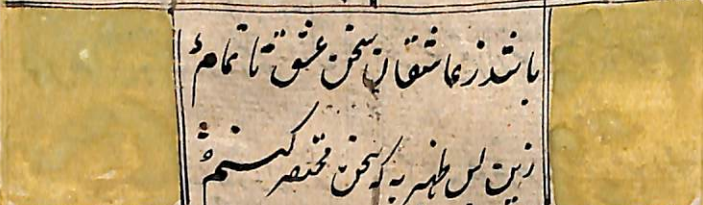 باشد ز عاشقان سخن عشق ناتمام
زین پس ظهیر به که سخن مختصر کنم